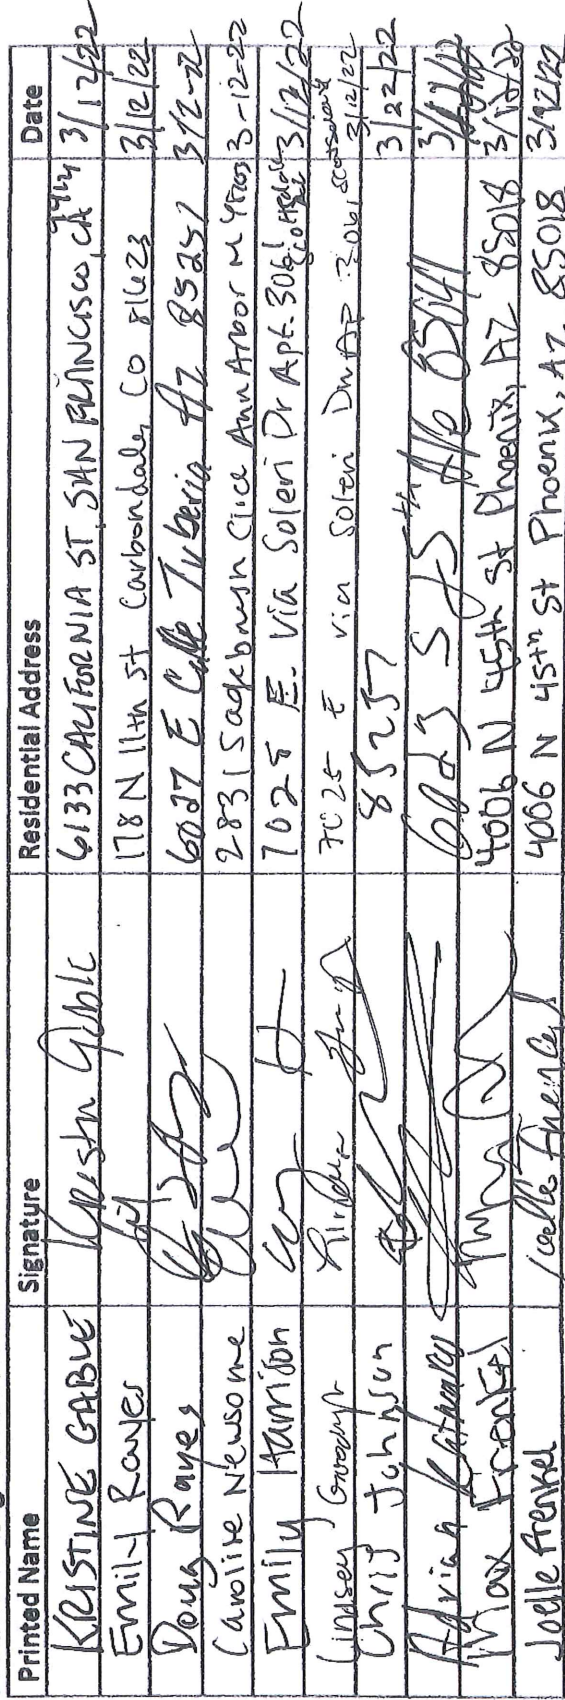 Printed Name Signature Residential Address Date
KRISTINE GABLE Kristin Gable 6133 CALIFORNIA ST. SAN FRANCISCO, CA 3/12/22
Emily Rayes 178 N 11th St Carbondale, CO 81623 3/12/22
Doug Rayes 6027 E Calle Tuberia AZ 85251 3/12-22
Caroline Newsome 2831 Sagebrush Circle Ann Arbor MI 3-12-22
Emily Harrison 7025 E. Via Soleri Dr Apt. 3061 Scottsdale 3/12/22
Lindsey 7025 E via Soleri Dr AP 3061 Scottsdale 3/12/22
Chris Johnson 85257 3/22/22
Adrian 85041
Max Frenkel 4006 N 45th St Phoenix, AZ 85018 3/12/22
Joelle Frenkel Joelle Frenkel 4006 N 45th St Phoenix, AZ 85018 3/12/22